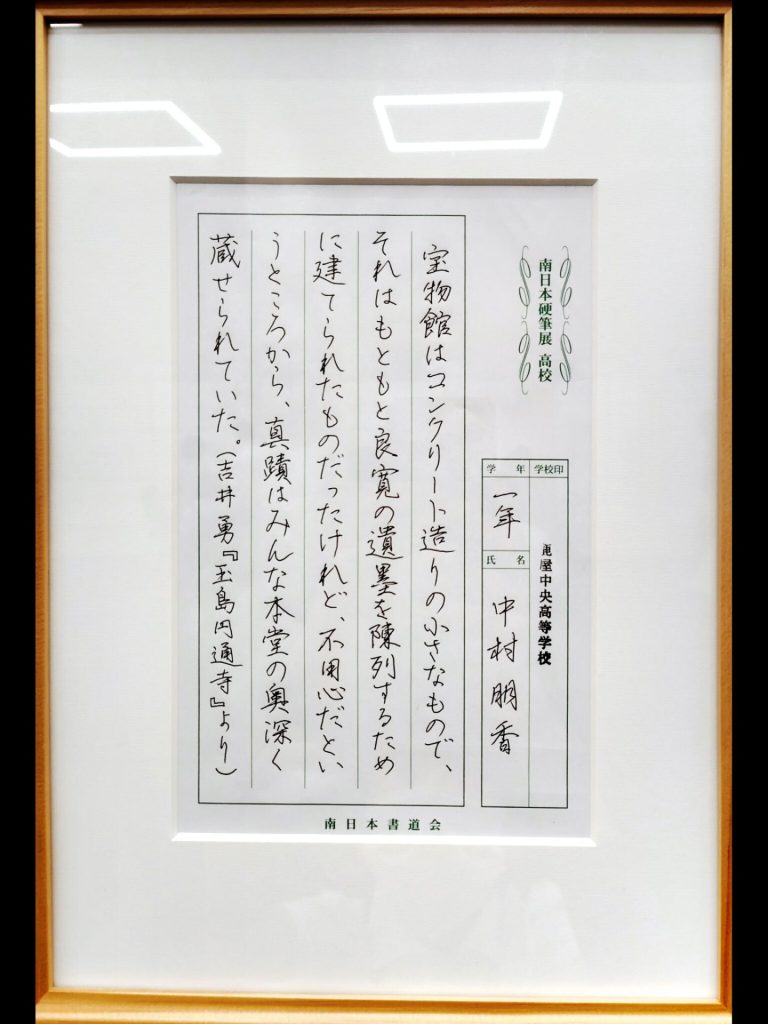 南日本硬筆展 高校
学校印
鹿屋中央高等学校
学年
一年
氏名
中村朋香
宝物館はコンクリート造りの小さなもので、
それはもともと良寛の遺墨を陳列するため
に建てられたものだったけれど、不用心だとい
うところから、真蹟はみんな本堂の奥深く
蔵せられていた。(吉井勇『玉島円通寺』より)
南日本書道会